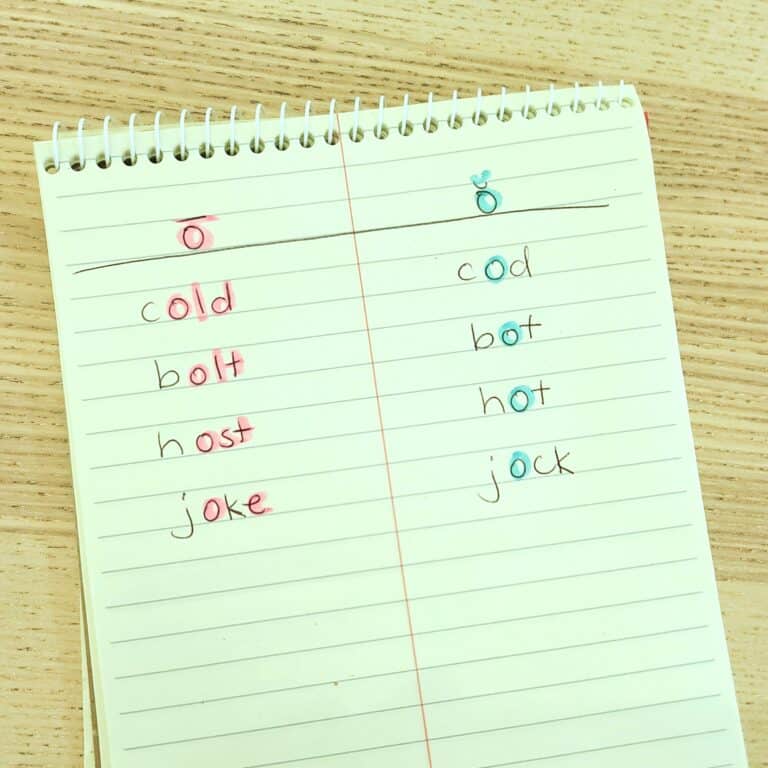 ō ŏ
cold cod
bolt bot
host hot
joke jock